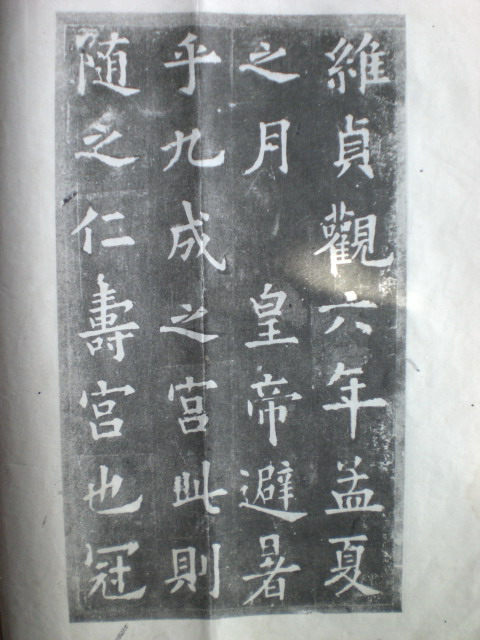 維貞觀六年孟夏
之月　皇帝避暑
乎九成之宮此則
随之仁壽宮也冠